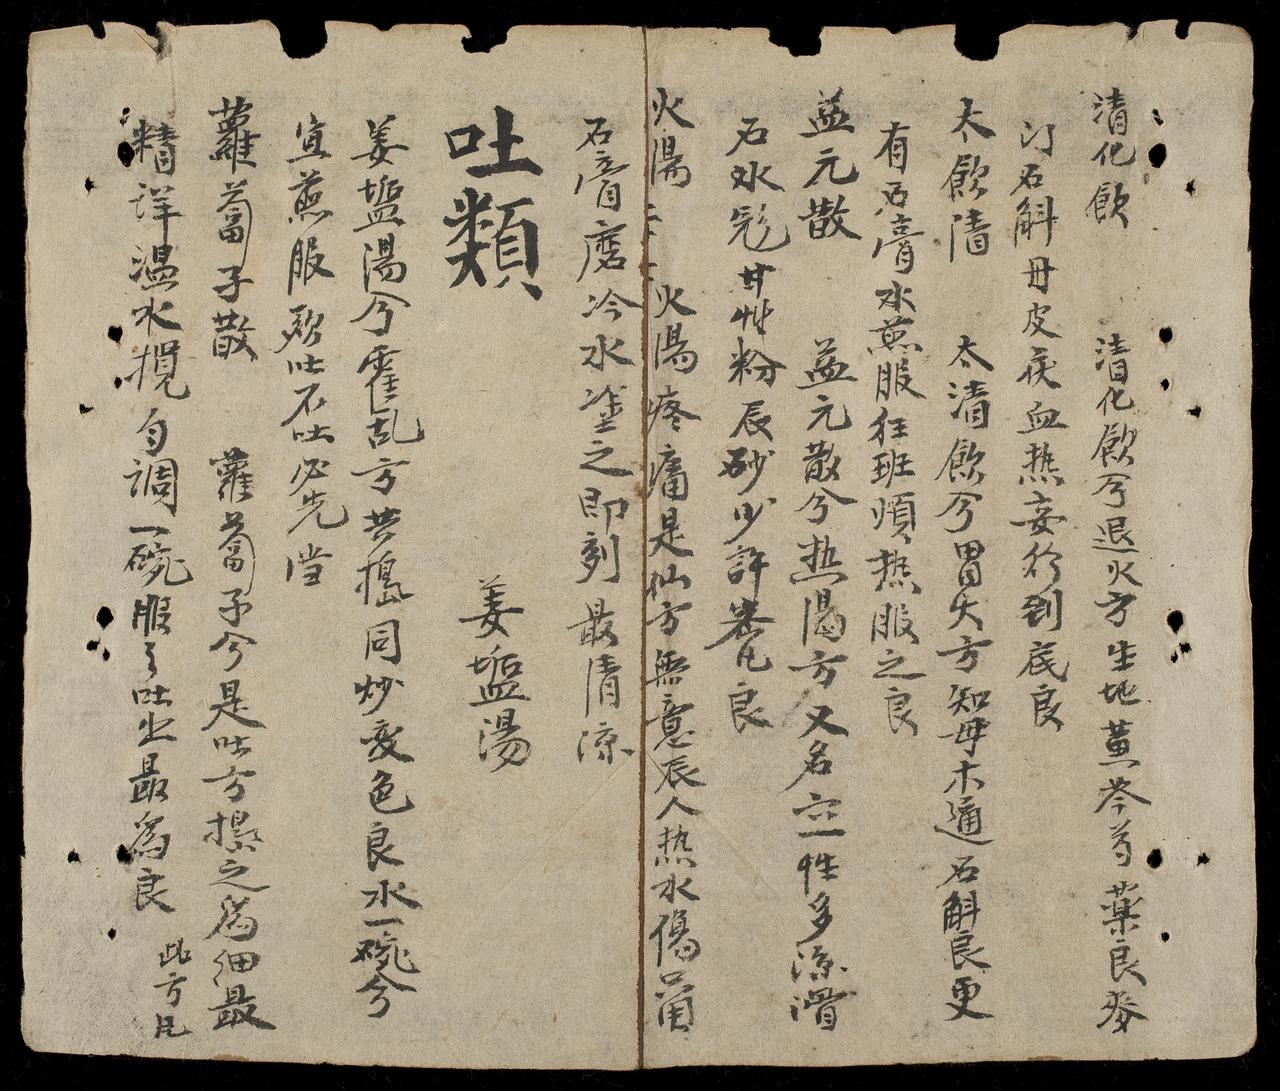 清化飲　清化飲兮退火方生地黃芩芍藥良麥
汀石斛丹皮茯血热妄行到底良
太飲清　太清飲兮胃火方知母木通石斛良更
有石膏水煎服狂班煩热服之良
益元散　益元散兮热渴方又名六一性多凉滑
石水飛甘艸粉辰砂少許養良
火湯　火湯疼痛是仙方無意辰人热水傷
石膏磨冷水塗之即刻最清凉
吐類　姜塩湯
姜塩湯兮霍乱方共搗同炒变色良水一碗兮
宜煎服欲吐不吐必先
蘿蔔子散　蘿蔔子兮是吐方擂之為细最
精详温水攪匀調一碗服了吐出最為良
此方